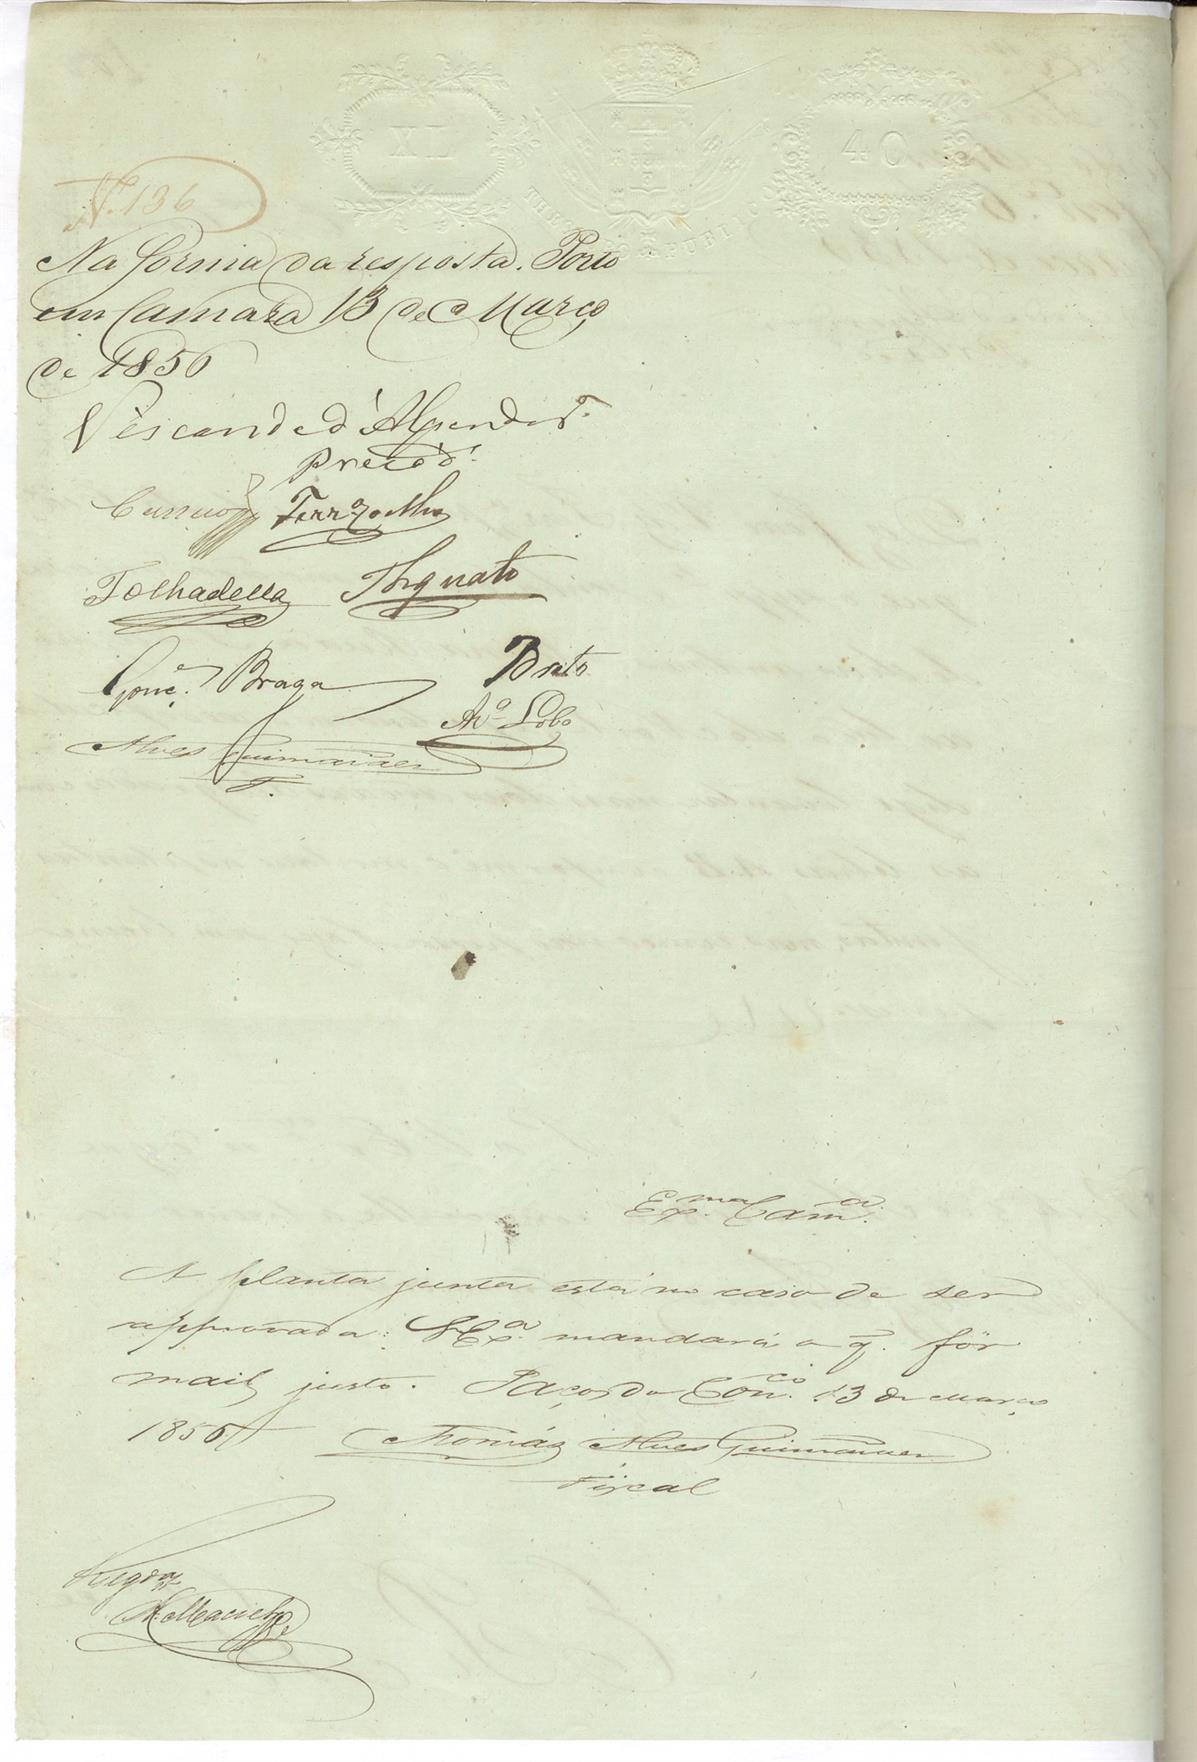 XL
40
THESOURO PUBLICO
N.º 136
Na forma da resposta. Porto
em Camara 13 de Março
de 1856
Visconde d'Alpend.ª
Prezd.
Ferr.ª
Folhadella Torquato
Gonç. Braga Brito
Av.º Lobo
Alves Guimarães
F.
Ex.ma Cam.ª
A planta junta está no caso de ser
approvada: V. Ex.ª mandará o q. fôr
mais justo. Paços do Con.co 13 de Março
1856
Thomás Alves Guimarães
Fiscal
Reg.da